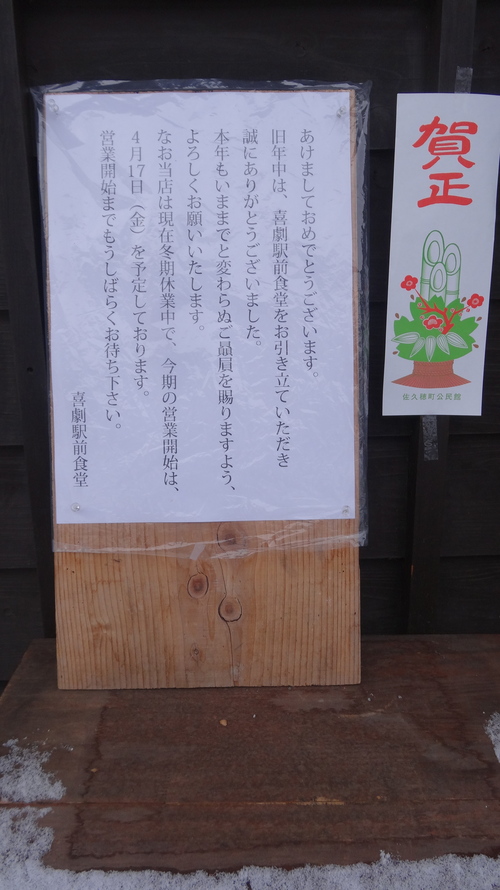 あけましておめでとうございます。
旧年中は、喜劇駅前食堂をお引き立ていただき
誠にありがとうございました。
本年もいままでと変わらぬご贔屓を賜りますよう、
よろしくお願いいたします。
なお当店は現在冬期休業中で、今期の営業開始は、
4月17日（金）を予定しております。
営業開始までもうしばらくお待ち下さい。
喜劇駅前食堂
賀正
佐久穂町公民館